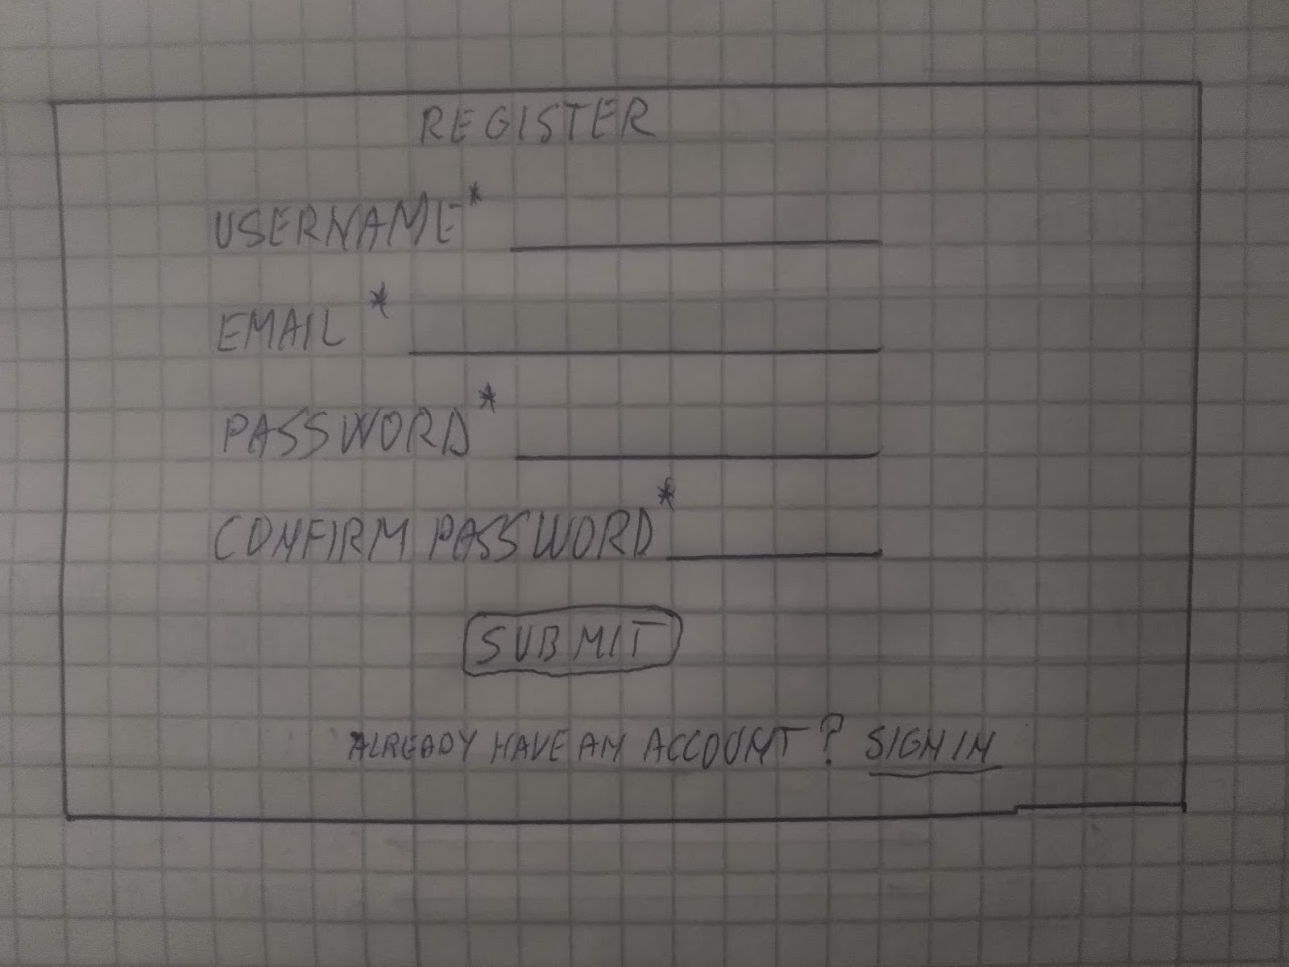 REGISTER
USERNAME*
EMAIL *
PASSWORD*
CONFIRM PASSWORD*
SUBMIT
ALREADY HAVE AN ACCOUNT? SIGN IN